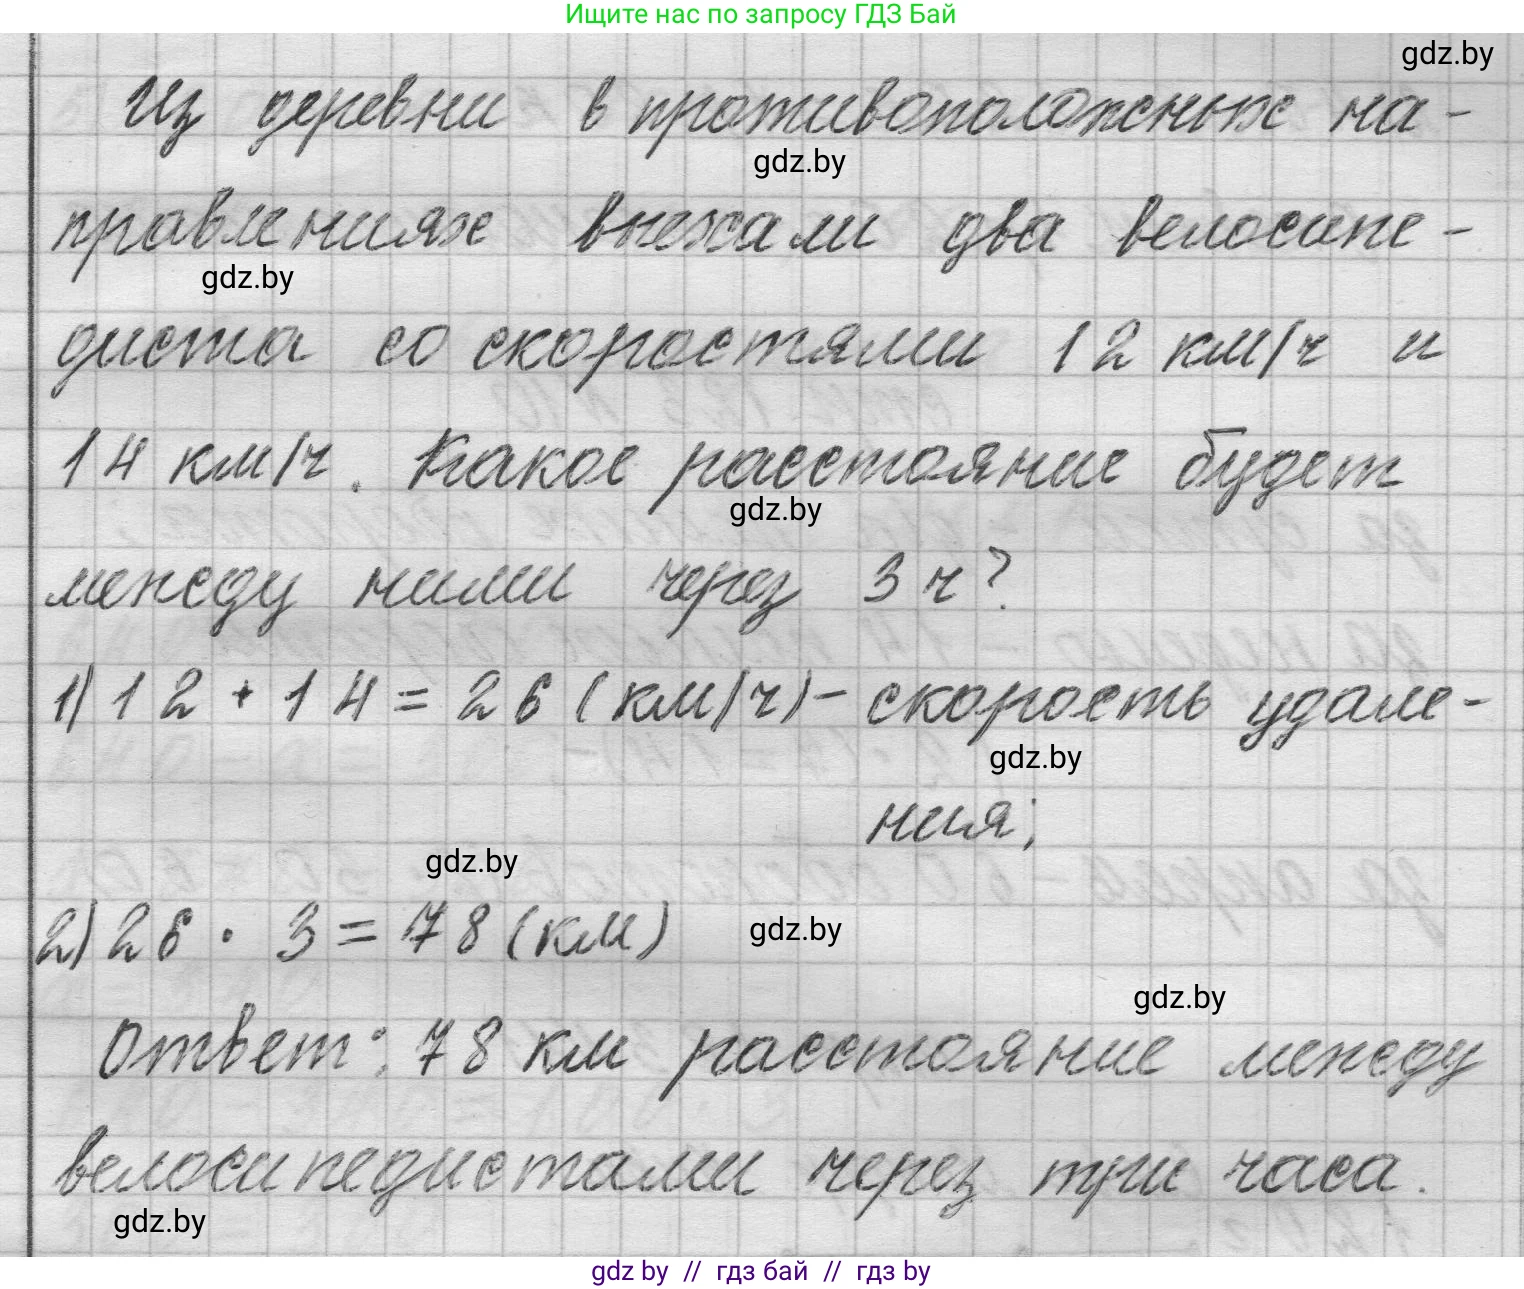 Ищите нас по запросу ГДЗ Бай
gdz.by
Из деревни в противоположных на-
gdz.by
правлениях выехали два велосипе-
gdz.by
диста со скоростями 12 км/ч и
14 км/ч. Какое расстояние будет
gdz.by
между ними через 3 ч?
1) 12 + 14 = 26 (км/ч) - скорость удале-
gdz.by
ния;
gdz.by
2) 26 · 3 = 78 (км)
gdz.by
gdz.by
Ответ: 78 км расстояние между
велосипедистами через три часа.
gdz.by
gdz by // гдз бай // гдз by